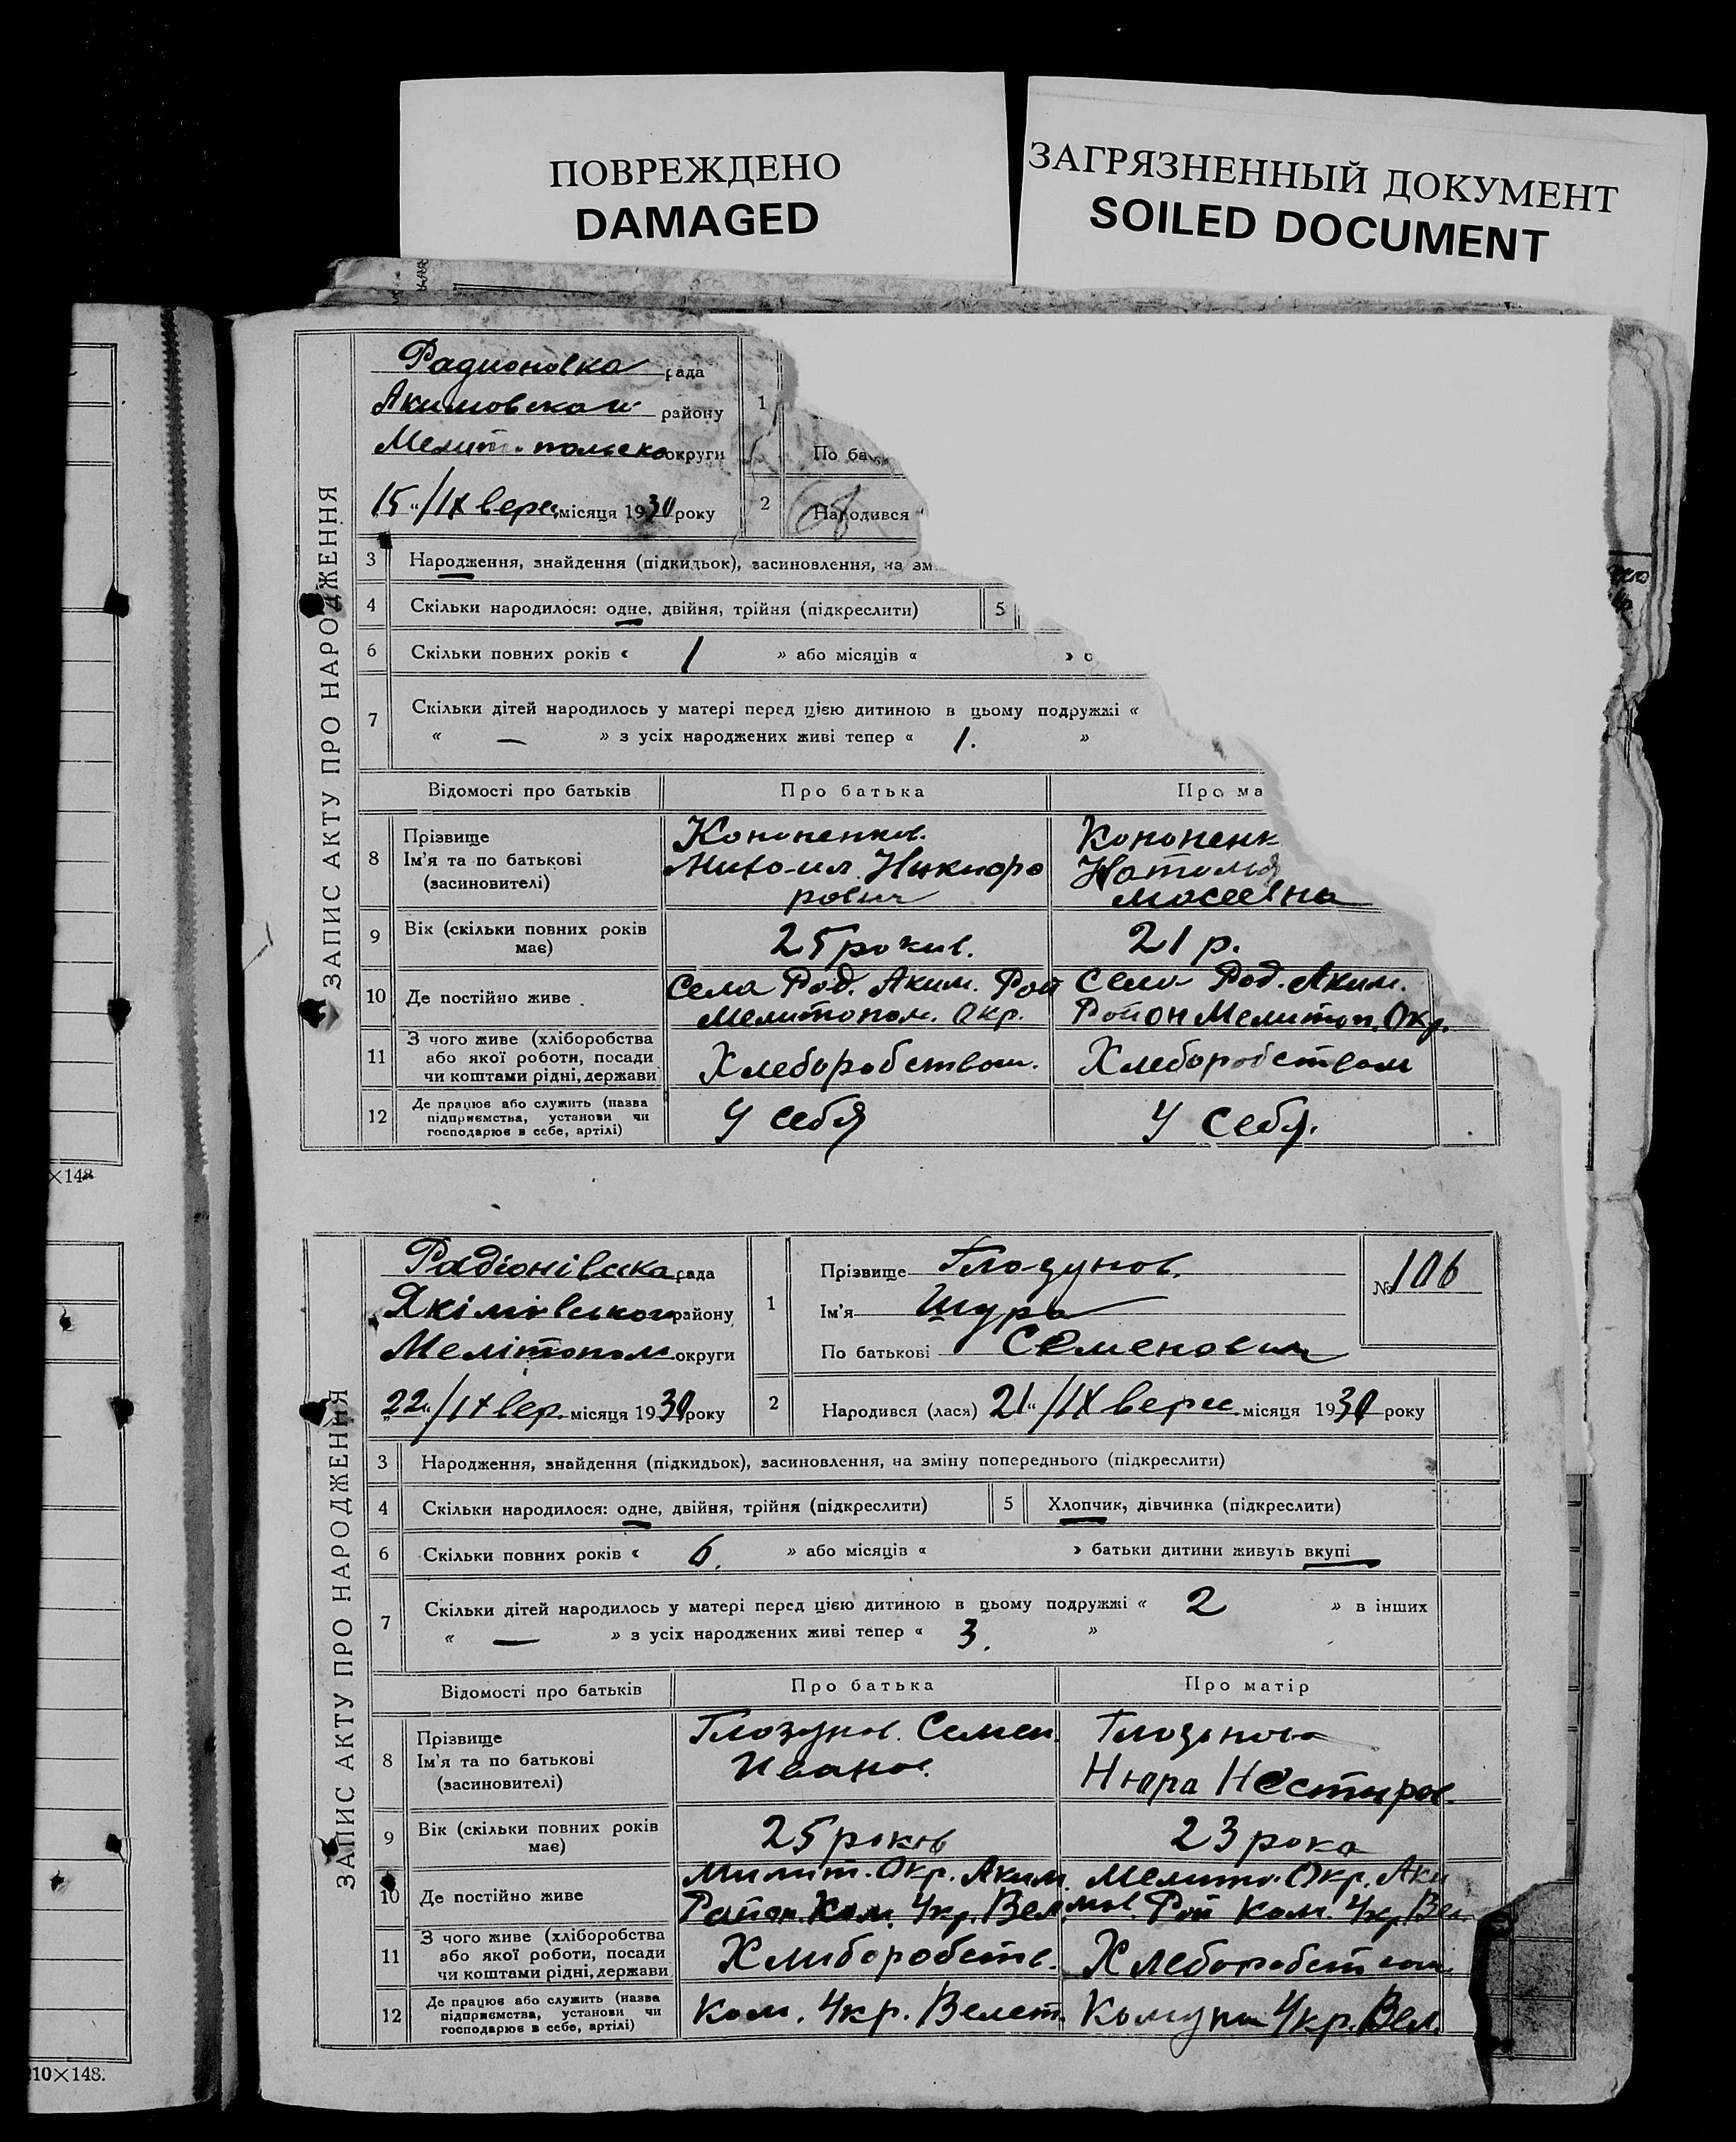 ПОВРЕЖДЕНО
DAMAGED
ЗАГРЯЗНЕННЫЙ ДОКУМЕНТ
SOILED DOCUMENT
ЗАПИС АКТУ ПРО НАРОДЖЕННЯ
Радионовка рада
Акимовской району
округи
1
По ба
„15“/IX верес місяця 1930 року
2
Народився
3 Народження, знайдення (підкидьок), засиновлення, на зм
4 Скільки народилося: одне, двійня, трійня (підкреслити) 5
6 Скільки повних років « 1 » або місяців « »
7 Скільки дітей народилось у матері перед цією дитиною в цьому подружжі «
« — » з усіх народжених живі тепер « 1. »
Відомості про батьків Про батька Про ма
8 Прізвище
Ім'я та по батькові
(засновителі)
Кононенков.
Никифо
рович
Кононенк
Наталия
Мосеевна
9 Вік (скільки повних років має) 25 рокив. 21 р.
10 Де постійно живе
Села Рад. Аким. Рой
Мелитопол. Окр.
Село Рад. Аким.
Район Мелитоп. Окр.
11 З чого живе (хліборобства
або якої роботи, посади
чи коштами рідні, держави
Хлеборобством. Хлеборобством
12 Де працює або служить (назва
підприємства, установи чи
господарює в себе, артілі)
У себя У себя.
×148
ЗАПИС АКТУ ПРО НАРОДЖЕННЯ
Радіонівска рада
Якімівського району
Мелітопол округи
1
Прізвище Глазунов.
Ім'я Шура
По батькові Семенович
№ 106
„22“/IX вер. місяця 1930 року
2
Народився (лася) 21“/IX верес місяця 1930 року
3 Народження, знайдення (підкидьок), засиновлення, на зміну попереднього (підкреслити)
4 Скільки народилося: одне, двійня, трійня (підкреслити) 5 Хлопчик, дівчинка (підкреслити)
6 Скільки повних років « 6. » або місяців « » батьки дитини живуть вкупі
7 Скільки дітей народилось у матері перед цією дитиною в цьому подружжі « 2 » в інших
« — » з усіх народжених живі тепер « 3. »
Відомості про батьків Про батька Про матір
8 Прізвище
Ім'я та по батькові
(засновителі)
Глазунов. Семен.
Иванов.
Нюра Нестиров.
9 Вік (скільки повних років має) 25 років 23 рока
10 Де постійно живе
Милит. Окр. Аким.
Район. Ком. Укр. Вел.
Мелито. Окр. Аки
мов. Рой Ком. Укр. Вел.
11 З чого живе (хліборобства
або якої роботи, посади
чи коштами рідні, держави
Хлиборобств. Хлеборобством.
12 Де працює або служить (назва
підприємства, установи чи
господарює в себе, артілі)
Ком. Укр. Велет. Комуни Укр. Вел.
10×148.